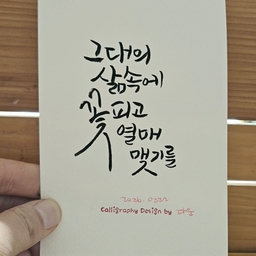 그대의
삶속에
꽃피고
열매
맺기를
Calligraphy Design by